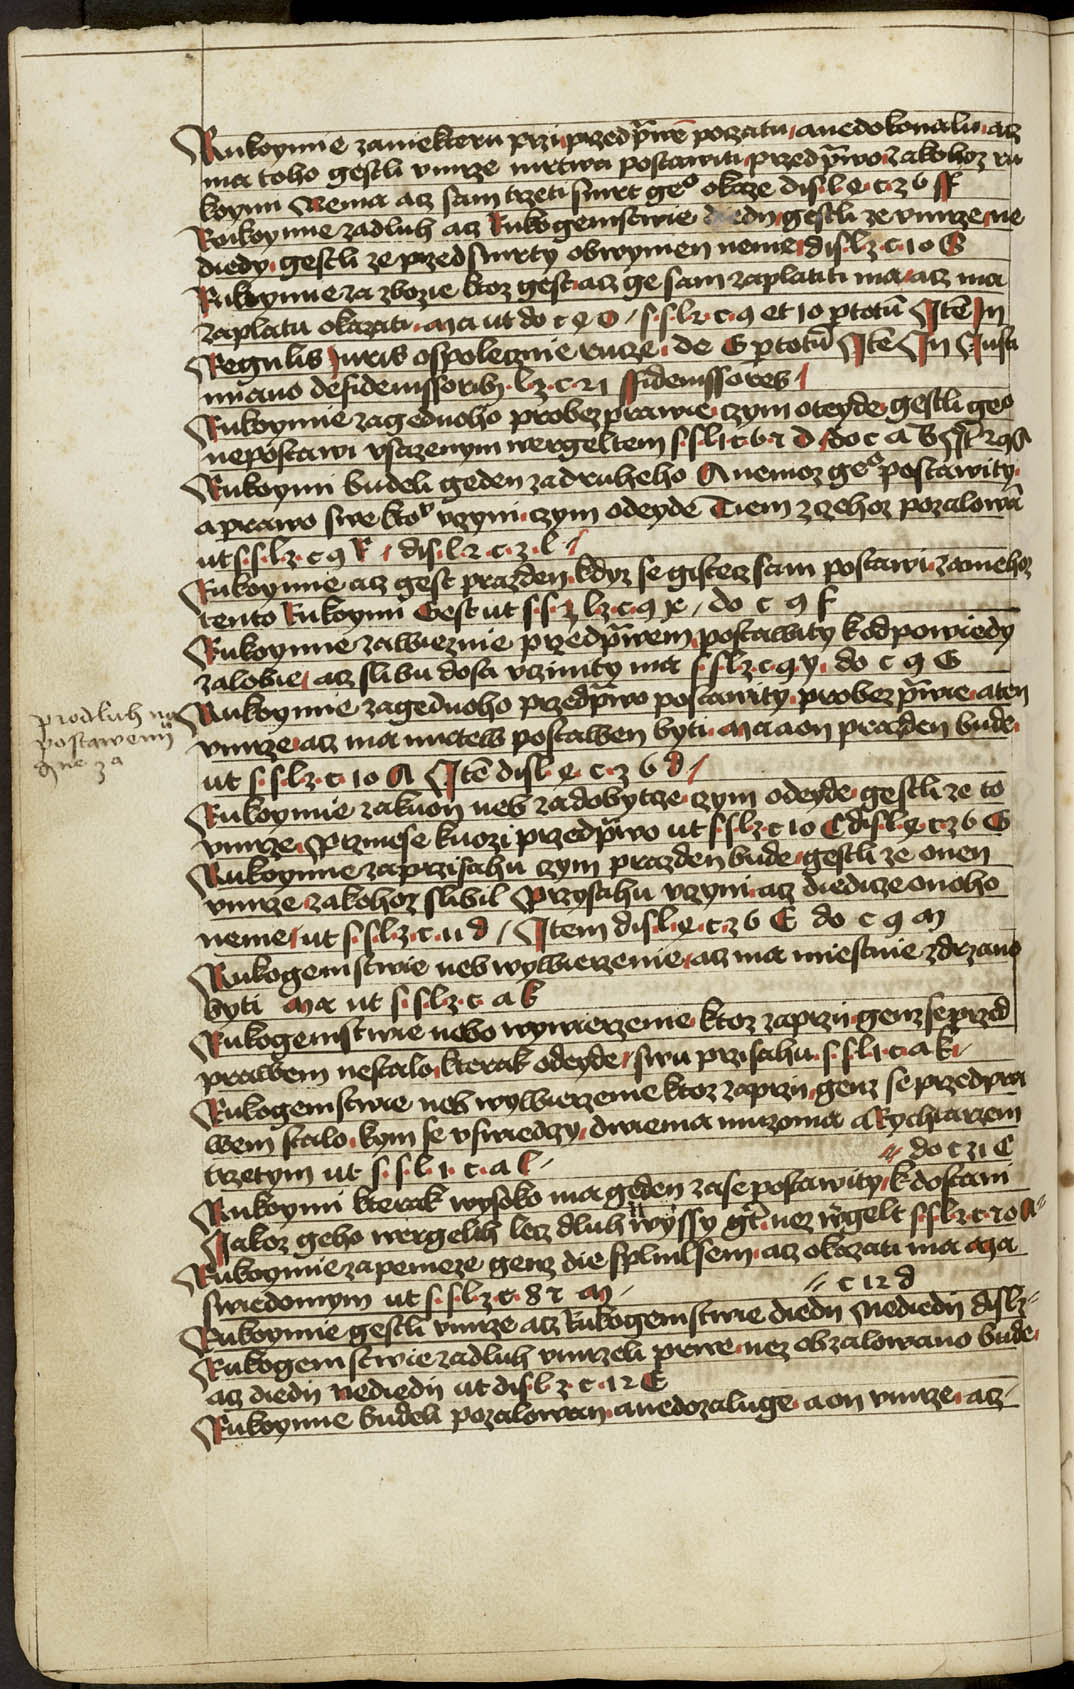 Rukoymie zaniekteru przi przed p̄wē poczatu anedokonalu acz
ma toho gestli vmrze mrtwa postawiti przed p̄wo zakohoz ru
koymi Nema acz sam trzeti smrt ge° okaze dis. l. 4. c. 36 ff
Rukoymie zadluh acz Rukogemstwie diedn gestli ze vmrze ne
diedy gestli ze przed smrty obwynien neme dis. l. z. c. 10 G
Rukoymie za zbozie ktoz gest acz ge sam zaplatiti ma acz ma
zaplatu okazati Ma ut do c 4 O s. s. l. 2. c. 9 et 10 ptotū Itē In
Regulis Juris ospoleczmie rucze de G ptotū Itē In Justi
miano defidemissorib. l. z. c. 21 ffidemissores
Rukoymie zagednoho probez prawie czym oteyde gestli geo
nepostawi vsazenym wergeltem s. s. l. 1. c. 6. 2 d do c a B
Rukoymi budeli geden zadruheho A nemoz ge° postawity
a prawo swe kto vczyni czym odeyde Tiem zczehoz pozalowā
ut s. s. l. z. c 9 R dis. l. 2. c. z. l
Rukoymie acz gest prazden kdyz se gistecz sam postawi zanehoz
tento Rukoymi Gest ut s. s. l. z. c. 9 x do c 9 f
Rukoymie zawiezmie przed p̄wem postawity kodpowiedy
zalobie acz slibu dosti vczinity ma s. s. l. z. c. 9. y. do c 9 G
Rukoymie zagednoho przed p̄wo postawity probez p̄wie aten
vmrze acz ma mrtew postawen byti Ma aon prazden bude
ut s. s. l. z. c. 10 A Itē dis l. 4. c. 36 d
Rukoymie zakuon neb zadobytcze czym odeyde gestli ze to
vmrze Przinese kuozi przed p̄wo ut s. s. l. z. c 10 C dis. l. 4. c. 36 G
Rukoymie zaprzisahu czym prazden bude gestli ze onen
vmrze zakohoz slibil Przysahu vczyni acz diedicze onoho
neme ut s. s. l. z. c. 11 d Item dis. l. 4. c. 36 E do c 9 m
Rukogemstwie neb wywierzenie acz ma miestnie zdrzano
byti Ma ut s. s. l. z. c. a k
Rukogemstwie nebo wywierzenie ktoz zaprzii genz se przed
prawem nestalo kterak odeyde swu przisahu s. s. l. 1. c. a k
Rukogemstwie neb wywierzenie ktoz zaprzii genz se przed pra
wem stalo kym se vswiedczy dwiema muzoma a Rychtarzem
trzetym ut s. s. l. 1. c. a l
do c z1 C
Rukoymi kterak wysoko ma geden zase postawity k dostani
Jakoz geho wergelth lecz dluh wyssy gt nez wgelt s. s. l. z. c. 20 A
Rukoymie zapenieze genz die splnil sem acz okazati ma Ma
swiedomym ut s. s. l. z. c. 87 m
c 12 d
Rukoymie gestli vmrze acz Rukogemstwie diedn Nediedn dis l z
Rukogemstwie zadluh vmrzeli prwe nez obzalowano bude
acz diedn nediedn ut dis. l. z. c. 12 E
Rukoymie budeli pozalowan anedozaluge aon vmrze acz
prodluh na
postawenii